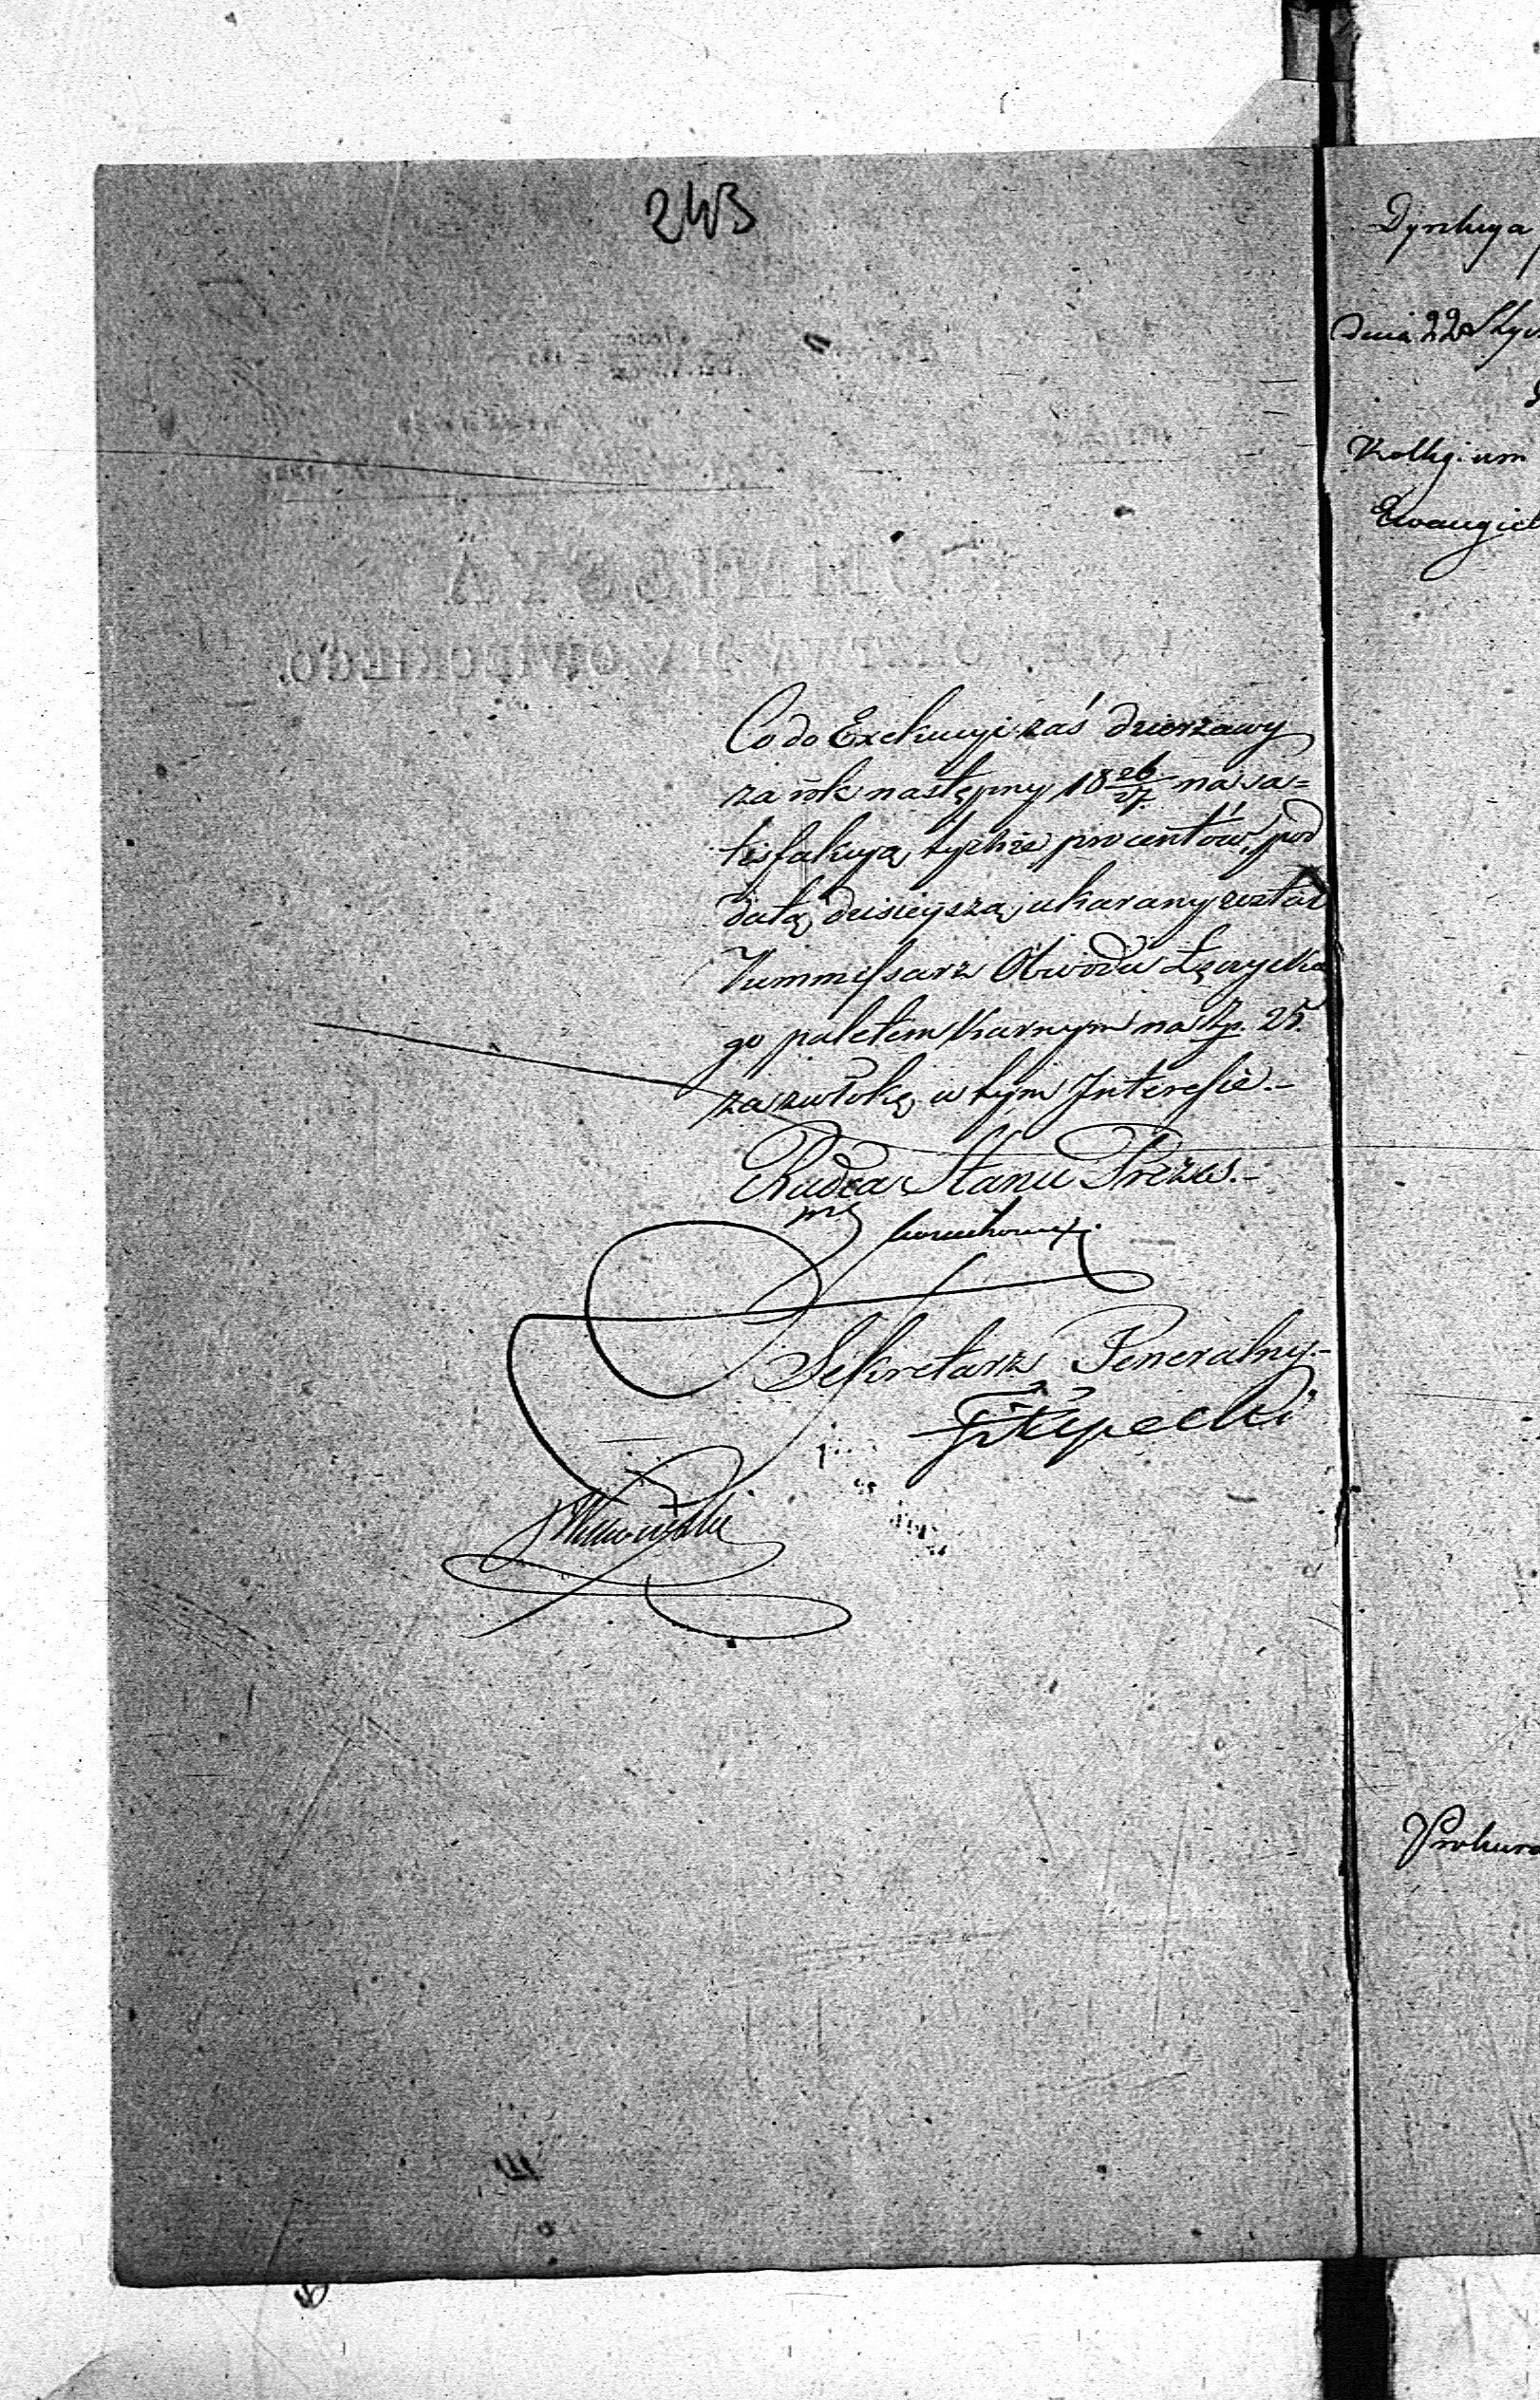 243
Co do Exekucyi zaś dzierzawy
za rok następny 18 26/27 na sa=
tisfakcyą tychże procentów, pod
datą dzisieyszą ukarany został
Kommissarz Obwodu Łęczyckie
go paletem karnym na Zp. 25.
za zwłokę w tym Interesie.-
Radca Stanu Prezes.-
Sekretarz Generalny.-
Filipecki
Dyrekcya
dnia 22 Stycz
Kollegium
Ewangiel
Prokura